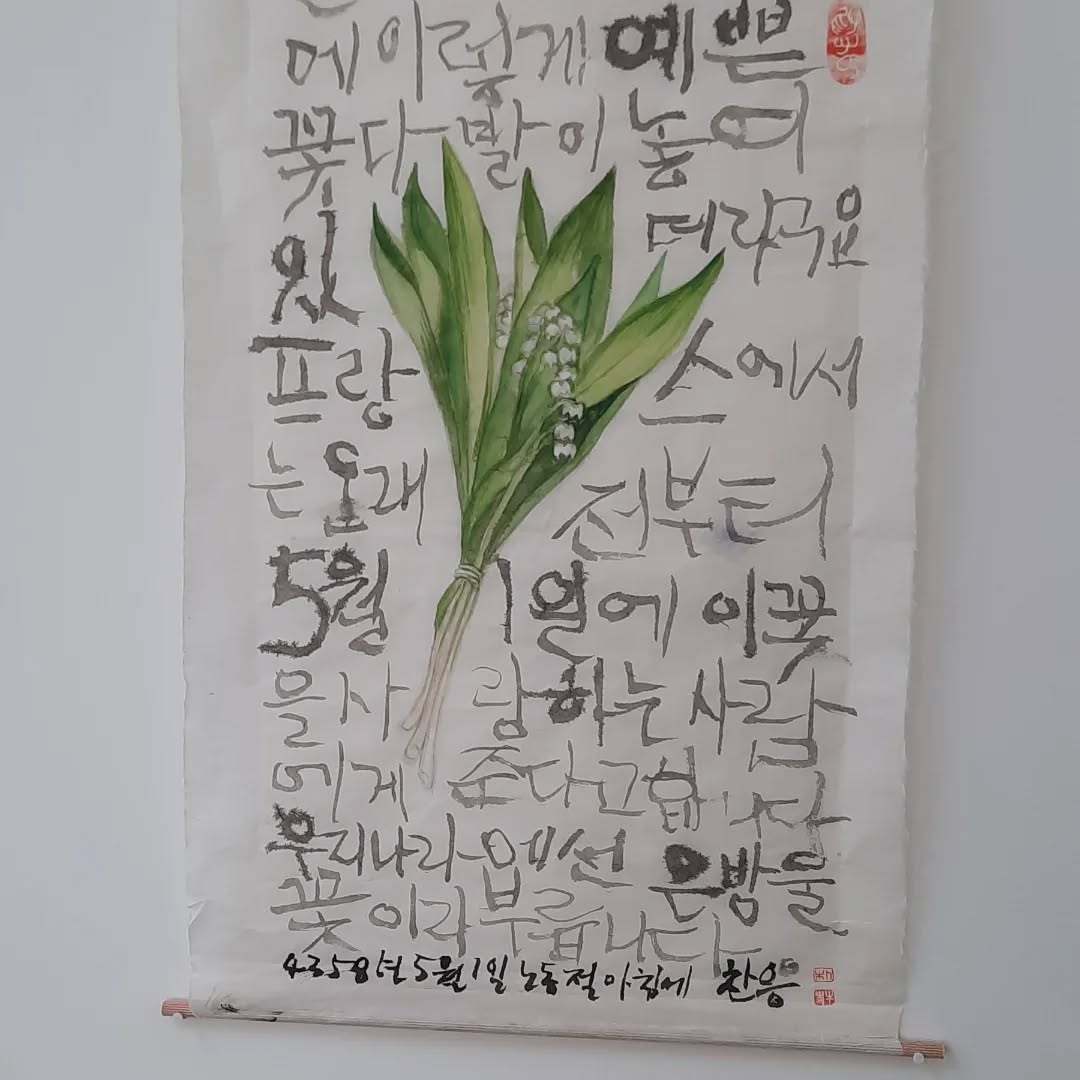 에 이렇게 예쁜
꽃다발이 놓여
있 더라구요
프랑 스에서
는 오래 전부터
5월 1일에 이 꽃
을 사 랑하는 사람
에게 준다고 합니다
우리나라에선 은방울
꽃이라 부릅니다
4358년 5월 1일 노동절 아침에 찬응